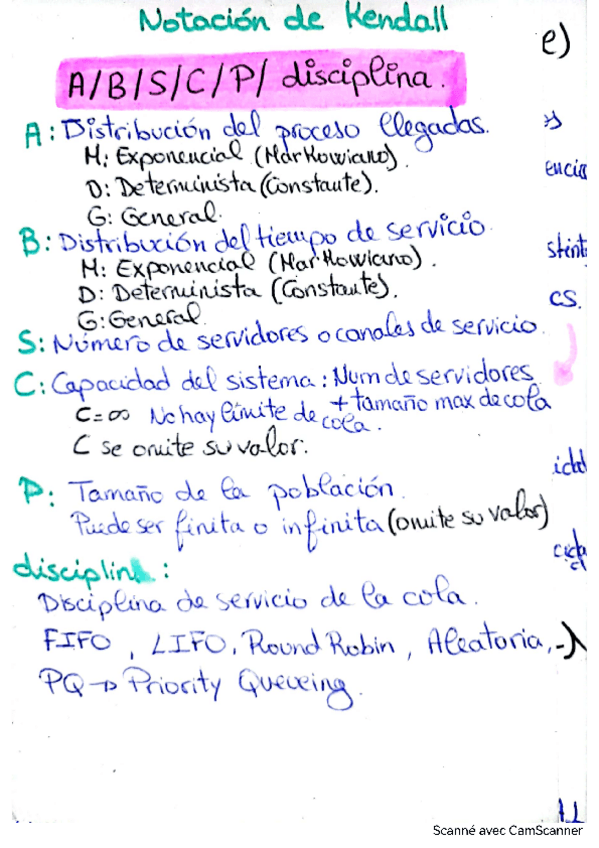 Notación de Kendall
e)
A/B/S/C/P/ disciplina.
A: Distribución del proceso llegadas.
M: Exponencial (Markowiano).
D: Determinista (Constante).
G: General.
B: Distribución del tiempo de servicio.
M: Exponencial (Markowiano).
D: Determinista (Constante).
G: General.
S: Número de servidores o canales de servicio.
C: Capacidad del sistema: Num de servidores
+ tamaño max de cola
C=∞ No hay límite de cola.
C se omite su valor.
P: Tamaño de la población.
Puede ser finita o infinita (omite su valor)
disciplina:
Disciplina de servicio de la cola.
FIFO, LIFO, Round Robin, Aleatoria,
PQ → Priority Queueing.
Scanné avec CamScanner